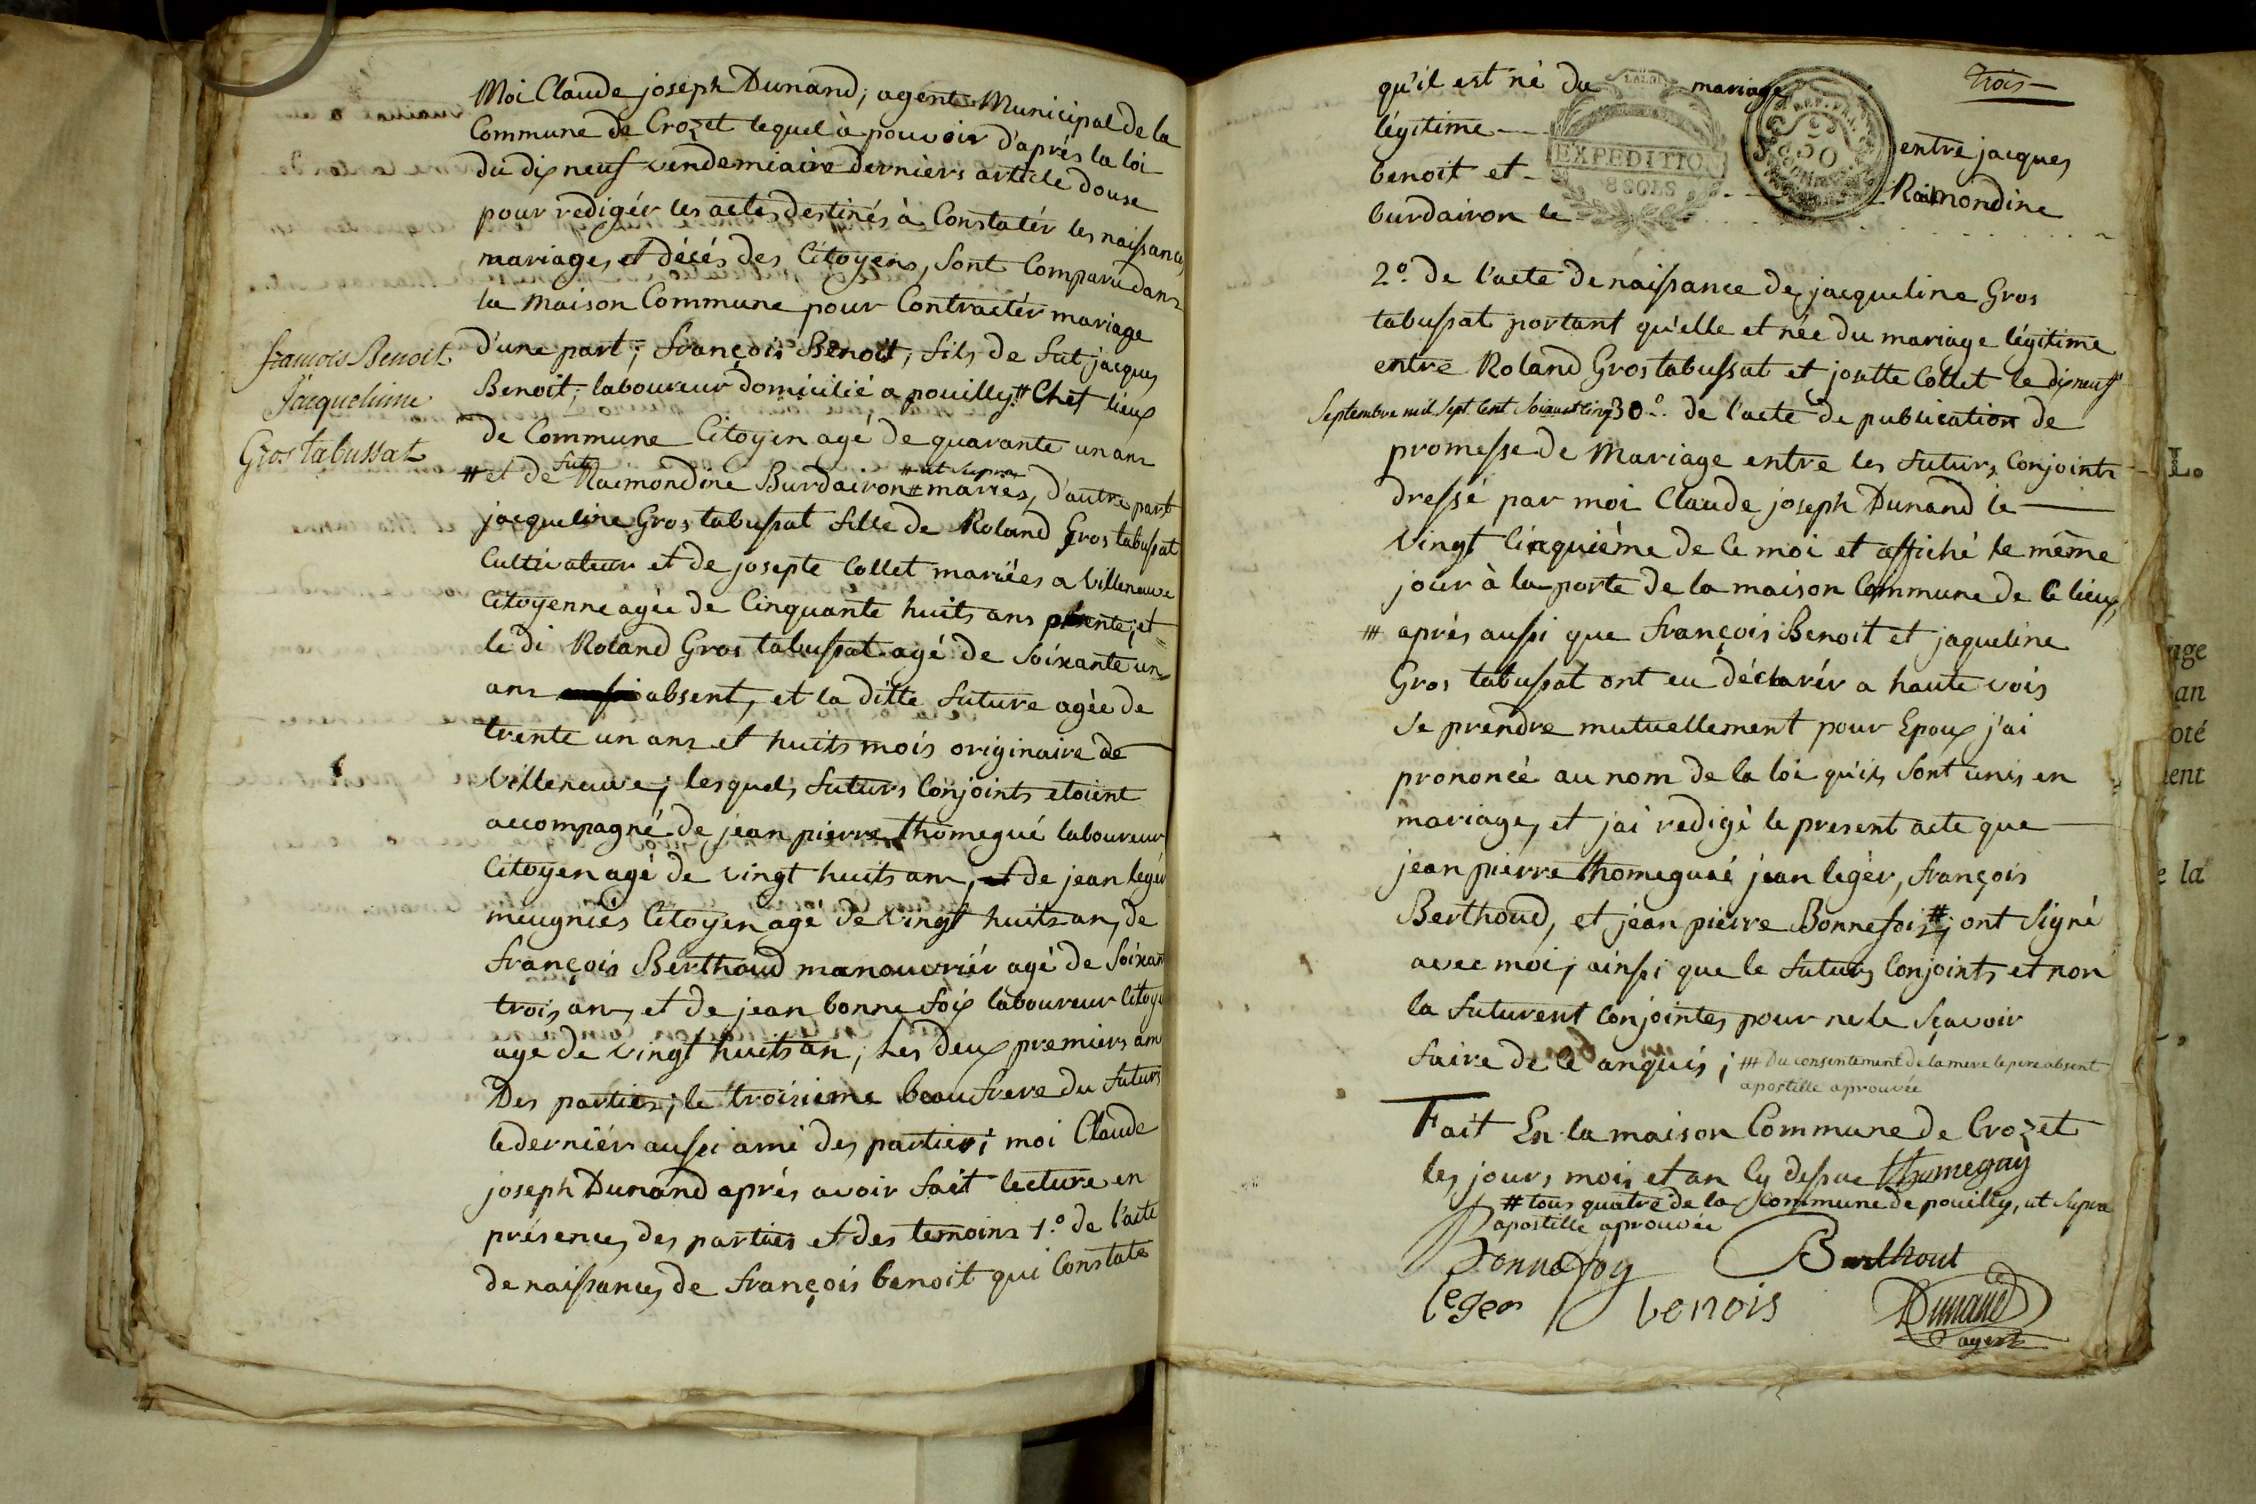 Moi Claude joseph Dunand, agent Municipal de la
Commune de Crozet lequel à pouvoir d'aprés la loi
du dix neuf vendemiaire derniérs article douse
pour redigér les actes destinés à Constatér les naissances
mariages et décés des Citoyens, sont Comparu dans
la maison Commune pour Contractér mariage
françois Benoit
Jacqueline
Gros tabussat
d'une part; françois Benoit, fils de fut jacques
Benoit, laboureur domicilié a pouilly # Chef lieux
de Commune Citoyen agé de quarante un ans
# et de fut Raimondine Burdairon # ut supra mariés, d'autre part
jacqueline Gros tabussat fille de Roland Gros tabussat
Cultivateur et de josepte Collet mariées a Villeneuve
Citoyenne agée de Cinquante huits ans presente, et
le di Roland Gros tabussat agé de soixante un
ans absent, et la ditte future agée de
trente un ans et huits mois originaire de
Villeneuve; lesquels futurs Conjoints etoient
accompagné de jean pierre thomegué laboureur
Citoyen agé de vingt huits ans, et de jean legér
meugniés Citoyen agé de vingt huits ans, de
françois Berthoud manouvriér agé de soixan
trois ans, et de jean bonne foix laboureur Citoye
age de vingt huits an; Les deux premiers ami
Des parties; le troisieme beau frere du futurs
le derniérs aussi ami des parties; moi Claude
joseph Dunand aprés avoir fait lecture en
présences des parties et des temoins 1.° de l'acte
de naissances de françois benoit qui Constate
trois
qu'il est né du mariage
légitime entre jacques
benoit et Raimondine
burdairon le
LA LOI
EXPEDITION
8 SOLS
REP. FRA.
50
2.° de l'acte de naissance de jacqueline Gros
tabussat portant qu'elle et née du mariage légitime
entre Roland Gros tabussat et josette Collet le dix neuf
Septembre mil sept Cent soixante Cinq 3.° de l'acte de publication de
promesse de Mariage entre les futurs Conjoints
dressé par moi Claude joseph Dunand le
Vingt Cinquiéme de Ce moi et affiché le même
jour à la porte de la maison Commune de Ce lieux
# aprés aussi que françois Benoit et jaqueline
Gros tabussat ont eu déclarér a haute vois
se prendre mutuellement pour Epoux j'ai
prononcé au nom de la loi qu'ils sont unis en
mariage, et j'ai redigé le present acte que
jean pierre thomegué jean legér, françois
Berthoud, et jean pierre Bonnefoix #, ont signé
avec moi, ainssi que le futurs Conjoints et non
la futurent Conjointes pour ne le sçavoir
faire de Ce anquis; # Du consentement de la mere le pere absent
apostille aprouvée
Fait En la maison Commune de Crozet
les jours mois et an Cy dessue thomegay
# tous quatre de la Commune de pouilly, ut supra
apostille aprouvée
Bonnefoy Berthout
leger benois Dunand
agent
L.
age
an
oté
ent
e la